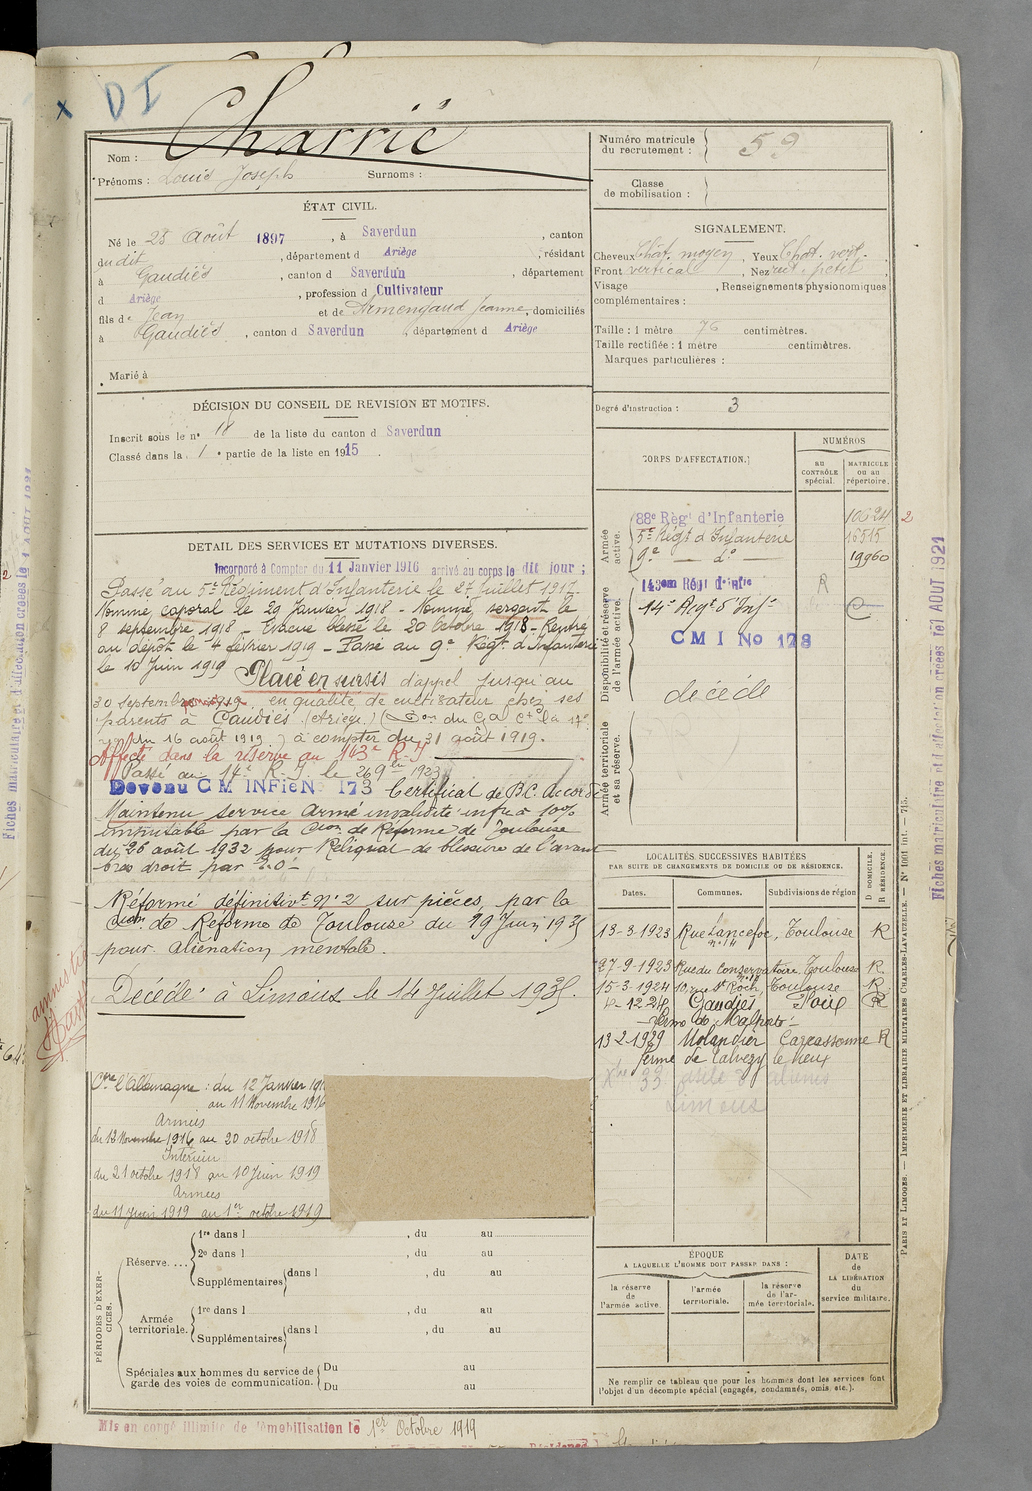 x DI
Charrié
Nom :
Prénoms : Louis Joseph Surnoms :
Numéro matricule
du recrutement : 59
Classe
de mobilisation :
ÉTAT CIVIL.
Né le 28 Août 1897 , à Saverdun , canton
du dit , département d Ariège , résidant
à Gaudiès , canton d Saverdun , département
d Ariège , profession d Cultivateur
fils de Jean et de Armengaud Jeanne, domiciliés
à Gaudiès , canton d Saverdun , département d Ariège
Marié à
SIGNALEMENT.
Cheveux Chât. moyen , Yeux Chât. vert.
Front vertical , Nez rect. petit
Visage , Renseignements physionomiques
complémentaires :
Taille : 1 mètre 76 centimètres.
Taille rectifiée : 1 mètre centimètres.
Marques particulières :
DÉCISION DU CONSEIL DE REVISION ET MOTIFS.
Inscrit sous le n° 18 de la liste du canton d Saverdun
Classé dans la 1 e partie de la liste en 1915 .
Degré d'instruction : 3
CORPS D'AFFECTATION.
NUMÉROS
AU
CONTRÔLE
spécial.
MATRICULE
OU AU
répertoire.
Armée
active.
88e Régt d'Infanterie 10624 2
5e Régt d'Infanterie 16515
9e — do — 19960
Disponibilité et réserve
de l'armée active.
143em Régt d'Infie R
14e Régt d'Infie
CMI No 173
décédé
Armée territoriale
et sa réserve.
DETAIL DES SERVICES ET MUTATIONS DIVERSES.
Incorporé à Compter du 11 Janvier 1916 arrivé au corps le dit jour ;
Passé au 5e Régiment d'Infanterie le 27 Juillet 1917.
Nommé caporal le 29 Janvier 1918 - Nommé sergent le
8 septembre 1918 - Evacué blessé le 20 octobre 1918 - Rentré
au dépôt le 4 février 1919 - Passé au 9e Régt d'Infanterie
le 10 Juin 1919 Placé en sursis d'appel jusqu'au
30 septembre 1919 en qualité de cultivateur chez ses
parents à Gaudiès (Ariège) (Don du Gal Ct la 17e
du 16 août 1919) à compter du 31 août 1919.
Affecté dans la réserve au 143e R.I
Passé au 14e R.I. le 26 9bre 1923
Devenu CM INFie No 173 Certificat de B.C. accordé
Maintenu service armé invalidité infre à 10%
imputable par la Cion de Réforme de Toulouse
du 26 août 1932 pour Reliquat de blessure de l'avant
bras droit par B.O.
Réformé définitivt n° 2 sur pièces, par la
Cion de Réforme de Toulouse du 19 Juin 1935
pour aliénation mentale.
Décédé à Limoux le 14 Juillet 1935.
amnistié
LOCALITÉS SUCCESSIVES HABITÉES
PAR SUITE DE CHANGEMENTS DE DOMICILE OU DE RÉSIDENCE.
D DOMICILE.
R RÉSIDENCE
Dates. Communes. Subdivisions de région
13-3-1923 Rue Lancefoc, Toulouse R
n° 14
27-9-1923 Rue du Conservatoire, Toulouse R.
15-3-1924 10 rue St Roch, Toulouse R
4-12-24 Gaudiès Foix R
ferme de Malpeté
13-2-1929 Molandier Carcassonne R
ferme de Calvezy le vieux
Xbre 33 asile d'aliénés
Limoux
Ctre l'Allemagne : du 12 Janvier 191
au 11 Novembre 1916
Armées
du 12 Novembre 1916 au 20 octobre 1918
Intérieur
du 21 octobre 1918 au 10 Juin 1919
Armées
du 11 Juin 1919 au 1er octobre 1919
PÉRIODES D'EXERCICES.
Réserve....
1re dans l , du au
2e dans l , du au
Supplémentaires dans l , du au
Armée
territoriale.
1re dans l , du au
Supplémentaires dans l , du au
Spéciales aux hommes du service de
garde des voies de communication.
Du au
Du au
ÉPOQUE
A LAQUELLE L'HOMME DOIT PASSER DANS :
la réserve
de
l'armée active.
l'armée
territoriale.
la réserve
de l'ar-
mée territoriale.
DATE
de
LA LIBÉRATION
du
service militaire.
Ne remplir ce tableau que pour les hommes dont les services font
l'objet d'un décompte spécial (engagés, condamnés, omis, etc.).
Mis en congé illimité de démobilisation le 1er Octobre 1919
PARIS ET LIMOGES. — IMPRIMERIE ET LIBRAIRIE MILITAIRES CHARLES-LAVAUZELLE. — N° 1001 int. — 715.
Fiches matriculaire et d'affectation créées le 1 AOUT 1921